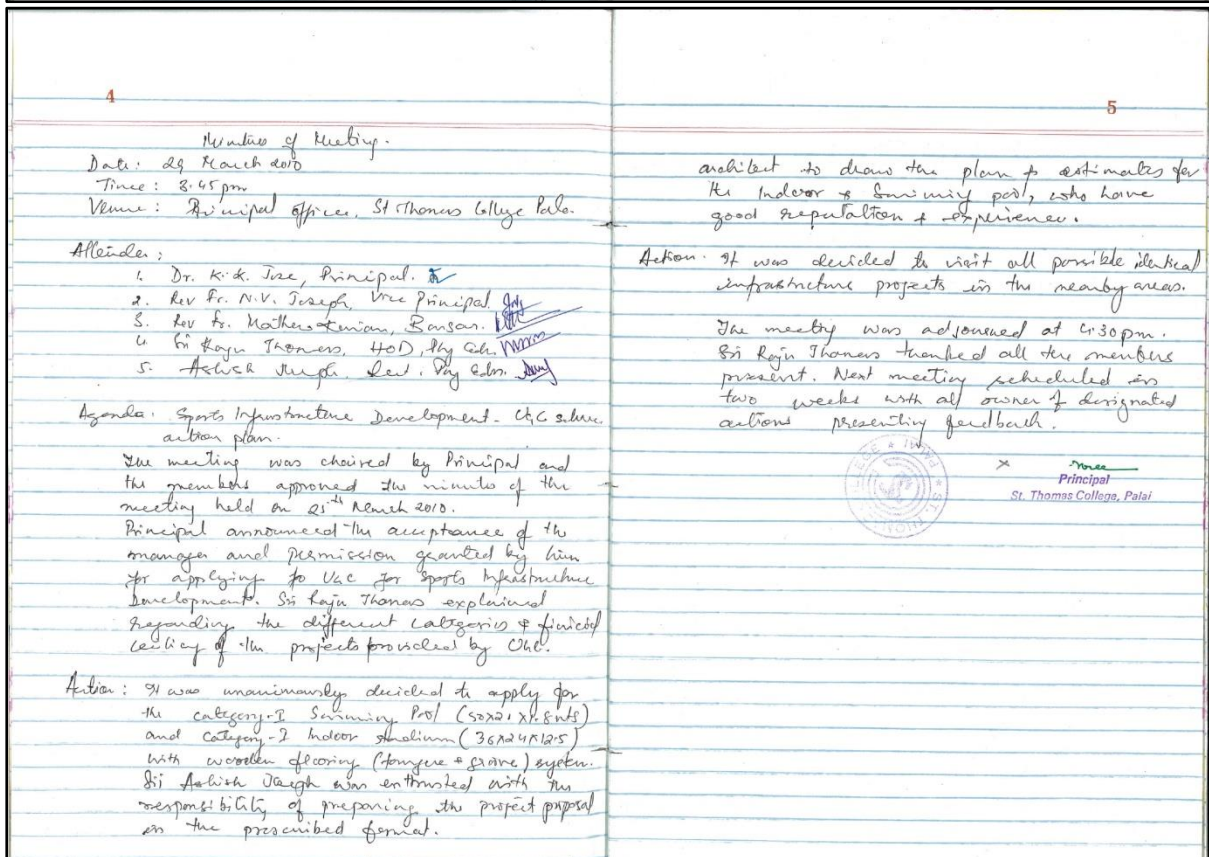 4
Minutes of Meeting.
Date: 29 March 2010
Time: 3.45 pm
Venue: Principal office, St Thomas College Pala.
Attendes:
1. Dr. K.K. Jose, Principal.
2. Rev Fr. N.V. Joseph, Vice Principal.
3. Rev Fr. Mathew Kurian, Bursar.
4. Sri Raju Thomas, HOD, Phy Edn.
5. Ashish Joseph. Phy Edn.
Agenda: Sports Infrastructure Development - UGC scheme
action plan.
The meeting was chaired by Principal and
the members approved the minutes of the
meeting held on 25th March 2010.
Principal announced the acceptance of the
manager and permission granted by him
for applying to UGC for Sports Infrastructure
Development. Sri Raju Thomas explained
regarding the different categories &
of the projects provided by UGC.
Action: It was unanimously decided to apply for
the category-I Swimming Pool (50x21x1.8mts)
and category-I Indoor stadium (36x24x12.5)
with wooden flooring (tongue & groove) system.
Sri Ashish Joseph was entrusted with the
responsibility of preparing the project proposal
in the prescribed format.
5
architect to draw the plan & estimates for
the Indoor & Swimming pool, who have
good reputation & experience.
Action. It was decided to visit all possible identical
infrastructure projects in the nearby areas.
The meeting was adjourned at 4:30pm.
Sri Raju Thomas thanked all the members
present. Next meeting scheduled in
two weeks with all owner of designated
actions presenting feedback.
Principal
St. Thomas College, Palai